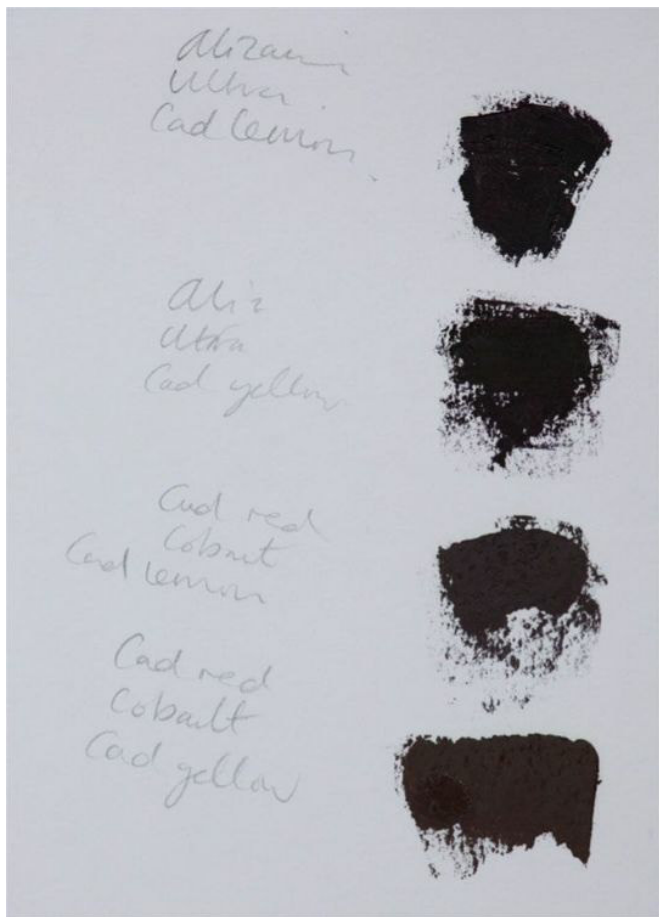 Alizarin
Ultra.
Cad lemon.
Aliz
Ultra
Cad yellow
Cad red
Cobault
Cad lemon
Cad red
Cobault
Cad yellow